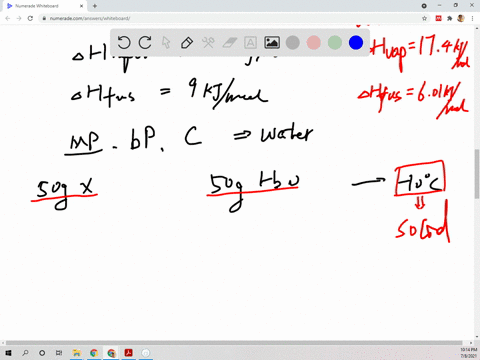 Numerade Whiteboard
numerade.com/answers/whiteboard/
Hvap = 17.4 kJ/mol
ΔHfus = 9 kJ/mol
ΔHfus = 6.01 kJ/mol
MP . bP. C ⇒ water
50g X 50g H2O → -10°C
⇓
solid
10:14 PM
7/8/2021